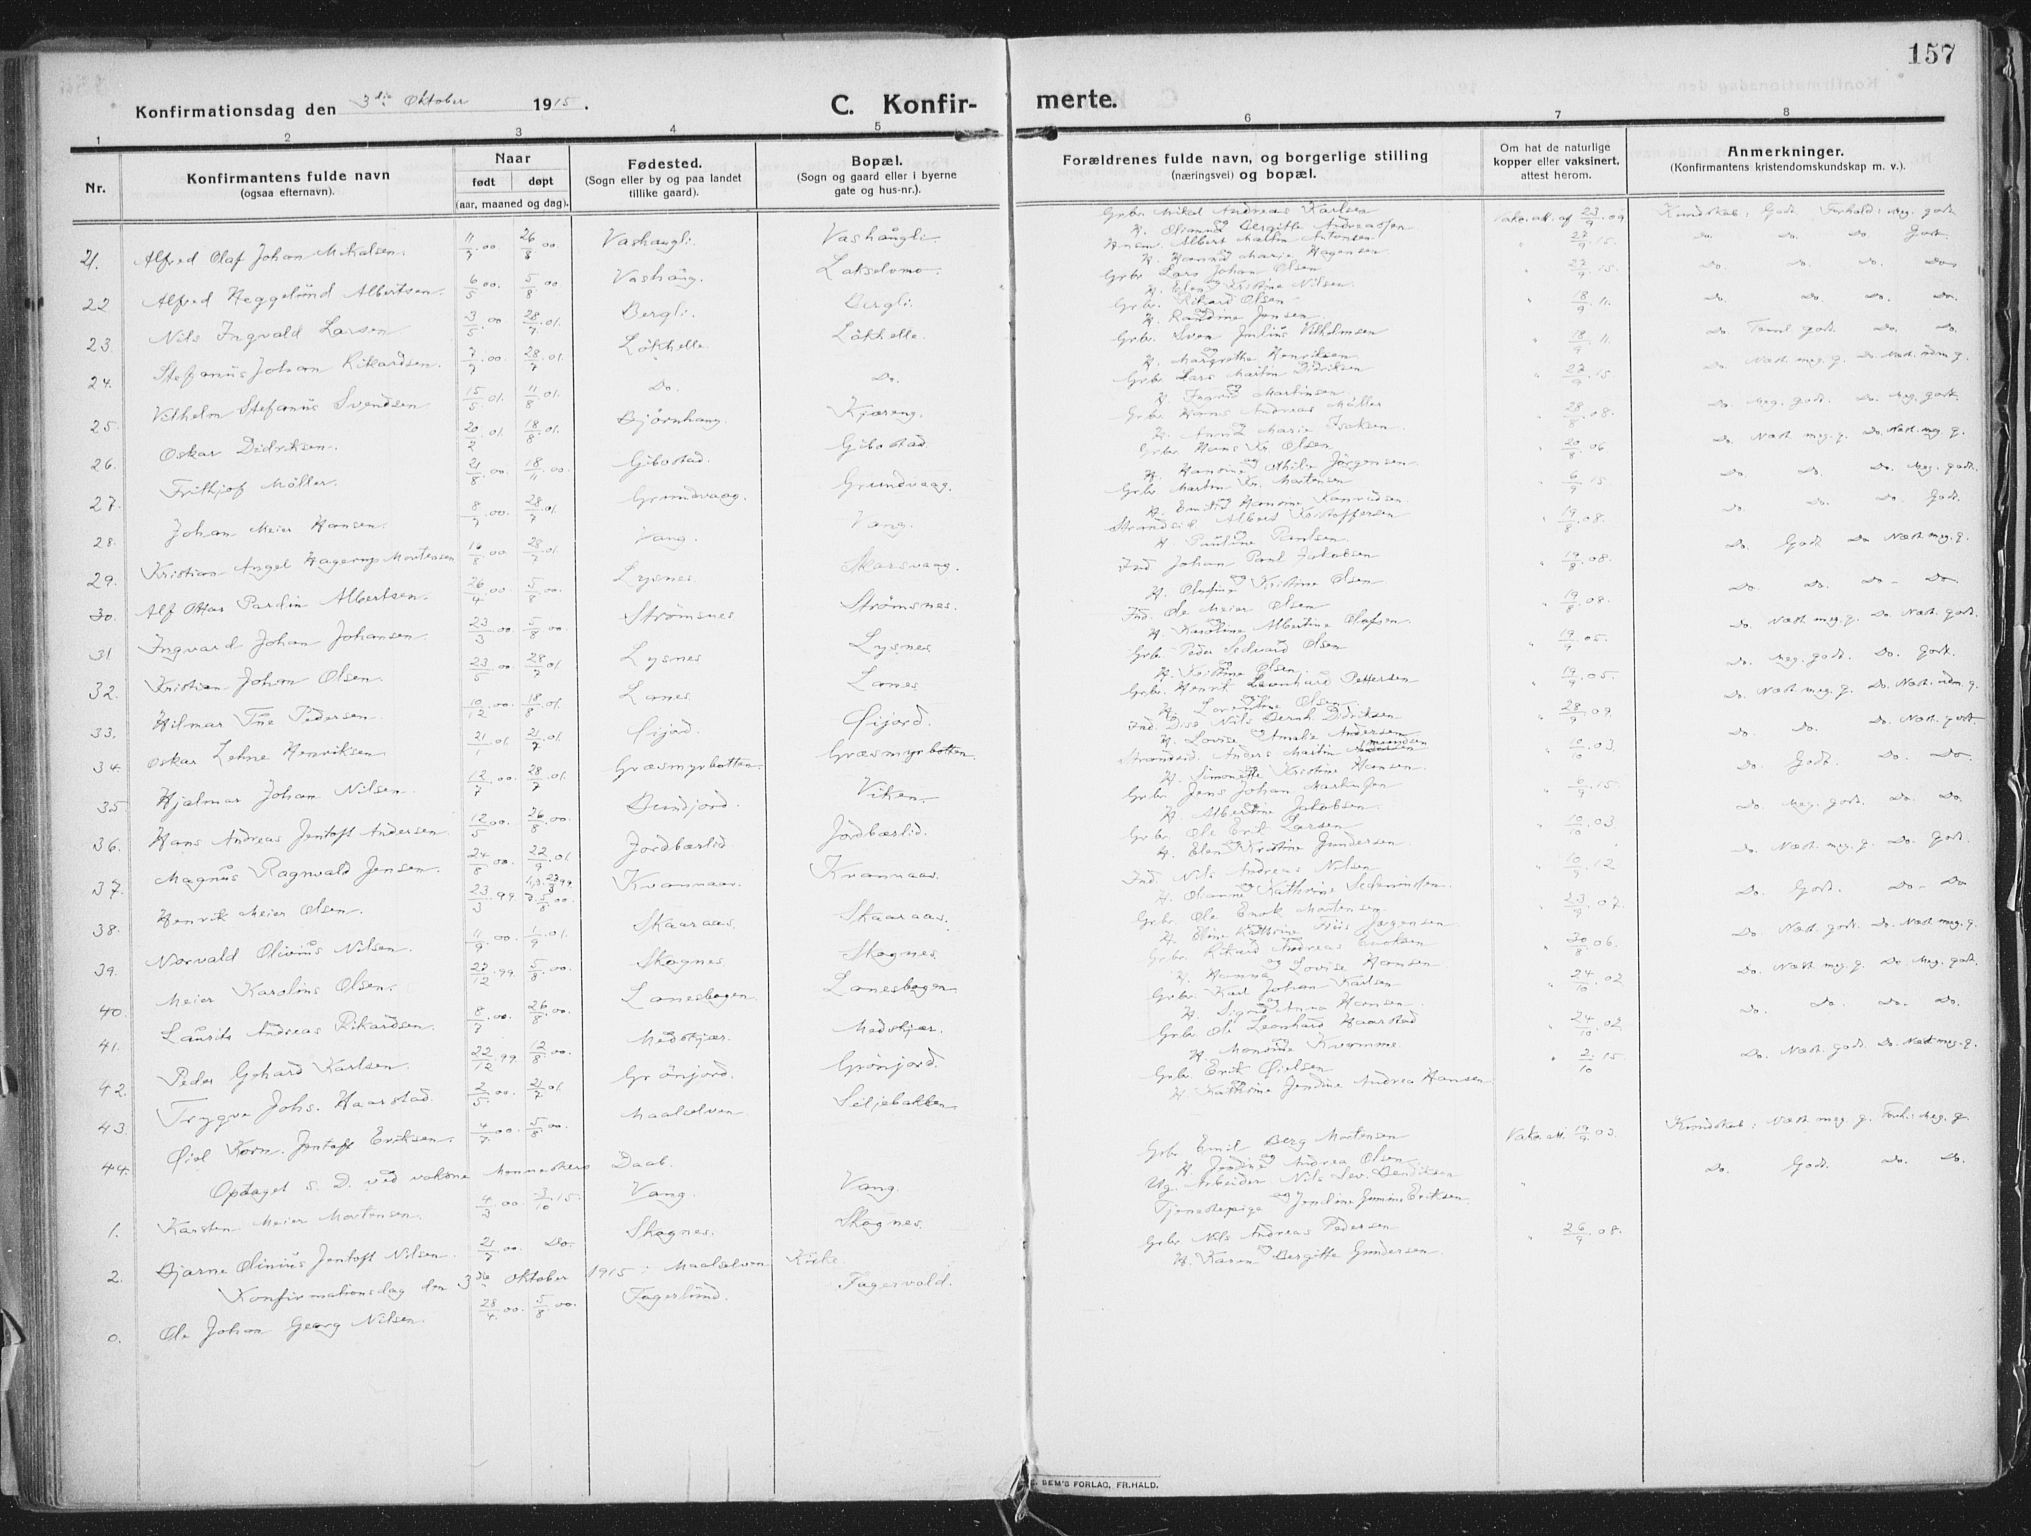 157
Konfirmationsdag den 3die Oktober 1915.
C. Konfir-
merte.
1 2 3 4 5 6 7 8
Nr.
Konfirmantens fulde navn
(ogsaa efternavn).
Naar
født døpt
(aar, maaned og dag).
Fødested.
(Sogn eller by og paa landet
tillike gaard).
Bopæl.
(Sogn og gaard eller i byerne
gate og hus-nr.).
Forældrenes fulde navn, og borgerlige stilling
(næringsvei) og bopæl.
Om hat de naturlige
kopper eller vaksinert,
attest herom.
Anmerkninger.
(Konfirmantens kristendomskundskap m. v.).
21. Alfred Olaf Johan Mikalsen. 11/7.00 26/8.00 Vashaugli. Vashaugli.
22 Alfred Heggelund Albertsen. 6/5.00. 5/8.00 Vashaug. Lakselvmo.
23. Nils Ingvald Larsen 3/5.00 28/7.01. Bergli. Bergli.
24. Stefanus Johan Rikardsen. 7/7.00. 28/7.01. Løkhelle. Løkhelle.
25. Vilhelm Stefanus Svendsen 15/5.01. 11/8.01. Do. Do.
26. Oskar Didriksen. 20/2.01. 18/8.01. Bjørnhaug. Kjæreng.
27. Frithjof Møller. 21/8.00. 18/11.00. Gibostad. Gibostad.
28. Johan Meier Hansen. 8/7.00. 28/7.01. Grundvaag. Grundvaag.
29. Kristian Angel Hagerup Mortensen 16/8.00 28/7.01. Vang. Vang.
30. Alf Ottar Pardin Albertsen. 26/4.00 5/8.00. Lysnes Skarsvaag.
31 Ingvard Johan Johansen 23/3.00. 5/8.00 Strømsnes Strømsnes.
32. Kristian Johan Olsen. 23/5.00. 28/7.01. Lysnes Lysnes
33. Hilmar Pedersen 10/12.00. 18/8.01. Lanes Lanes
34. Oskar Lehne Henriksen 21/1.01. 21/7.01. Øijord. Øijord.
35 Hjalmar Johan Nilsen. 12/7.00. 28/7.01. Græsmyrbotten. Græsmyrbotten
36. Hans Andreas Jentoft Andersen 12/5.00. 26/8.00. Bundjord. Viken.
37. Magnus Ragnvald Jensen. 24/8.00. 22/9.01 Jordbærlid. Jordbærlid.
38. Henrik Meier Olsen. 23/3.99 Kvannaas. Kvannaas.
39. Norvald Olivius Nilsen. 11/9.00. 1/9.01. Skaaraas. Skaaraas.
40. Meier Karolius Olsen. 23/12.99. 5/8.00. Skognes Skognes
41. Laurits Andreas Rikardsen. 8/7.00. 26/8.00. Lanesbogen. Lanesbogen.
42. Peder Gohard Karlsen. 22/12.99. 12/8.00. Medskjær. Medskjær.
43. Trygve Johs. Haarstad. 2/5.00. 21/7.01. Grønjord. Grønjord.
44. Øiel Korn. Jentoft Eriksen. 4/7.00. 5/8.00. Maalselven Seljebakken
Optaget s. D. ved voksne Menneskers Daab.
1. Karsten Meier Mortensen. 4/3.00. 3/10.15. Vang. Vang.
2. Bjarne Olinius Jentoft Nilsen. 21/7.00. Do. Skognes. Skognes.
Konfirmationsdag den 3die Oktober 1915 i Maalselven Kirke.
0. Ole Johan Georg Nilsen. 28/4.00. 5/8.00. Fagerlund. Fagervold.
Grbr. Mikal Andreas Karlsen
H. Olianna og Bergitte Andreassen Vaks. att. af 23/9.09 Kundskab: Godt Forhold: Meg. godt.
Albert Martin Antonsen
H. Hanna Marie Hagensen " 27/9.15. Do. Do. Do Godt.
Grbr. Lars Johan Olsen
H. Elen Kristine Nilsen. " 27/9.15. Do. Do. Do. Do.
Grbr. Rikard Olsen
H. Randine Jensen. " 18/9.11. Do. Do. Do. Do.
Grbr. Sven Julius Vilhelmsen
H. Margrethe Henriksen " 18/9.11. Do. Teml. godt. Do. Do.
Grbr Lars Martin Didriksen
H. Ingrid Martinsen " 27/9.15 Do. Næst. meg. g. Do. Næst. udm. g.
Grbr Hans Andreas Møller
H. Anna Marie Isaksen. " 28/8.08. Do. Meg. godt. Do. Meg. godt.
Grbr. Hans Kr. Olsen
H. Hansine Jørgensen. " 20/8.06 Do. Næst meg. g. Do. Næst. meg. g.
Grbr Morten Kr. Mortensen
H. Emilie Hansine Konradsen " 6/9.15 Do. Do. Do. Meg. godt.
Strandsid. Albert Kristoffersen
H. Pauline Paulsen. " 19/8.08. Do. Do. Do. Godt.
Ind. Johan Paul Jakobsen
H. Olufine og Kristine Olsen. " 19/8.08. Do. Godt Do Næst meg. g.
Ind. Ole Meier Olsen
H. Karoline Albertine Olafsen. " 19/8.08. Do. Do. Do. Do.
Grbr Peder Sedvard Olsen
H. Kristine Olsen. " 19/9.05. Do. Næst. meg. g. Do. Næst. godt.
Grbr. Henrik Leonhard Pettersen
H. Lorentine Olsen " 19/9.05. Do. Meg. godt. Do. Godt.
Ind. Nils Bernh. Didriksen
H. Lovise Amalie Andersen " 28/9.09. Do. Næst meg. g. Do. Næst. udm. g.
Strandsid. Anders Martin Amundsen
H. Simonette Kristine Hansen. " 10/10.03. Do. Do. Do. Næst. godt.
Grbr. Jens Johan Martin Jensen
H. Albertine Jakobsen. " 6/9.15. Do. Godt. Do. Do.
Grbr. Ole Erik Larsen
H. Elen Kristine Gundersen " 10/10.03 Do. Meg. godt. Do. Do.
Ind. Nils Andreas Nilsen
H. Olianna Kathrine " 10/9.12 Do. Næst. meg. g. Do. Godt.
Grbr. Ole Enok Mortensen
H. Eline Kathrine Friis Jørgensen " 23/9.07. Do. Godt. Do. Do
Grbr. Rikard Andreas Enoksen
H. Hanna Lovise Hansen " 30/8.06. Do. Næst. godt. Do. Næst meg. g.
Grbr. Karl Johan Karlsen
H. Sigrid Anna Hansen " 24/10.02 Do. Næst. meg. g. Do. Meg. godt.
Grbr Ole Leonhard Haarstad
H. Monsine Kvamme " 24/10.02 Do. Do. Do. Do.
Grbr Erik Øielsen
H. Kathrine Jendine Andrea Hansen. " 2/10.15 Do. Næst. godt. Do. Næst meg. g.
Grbr Emil Berg Mortensen
H. Jordine og Andrea Olsen Vaks. att. 19/9.03. Kundskab: Næst meg. g. Forh.: Meg. g.
Ug. Arbeider Nils Sev. Bendiksen
Tjenestepige Jendine Jemine Eriksen " Do. Godt. Do. Do.
Grbr. Nils Andreas Pedersen
H. Karen Bergitte Gundersen. " 26/9.08.
E. SEM'S FORLAG, FR.HALD.